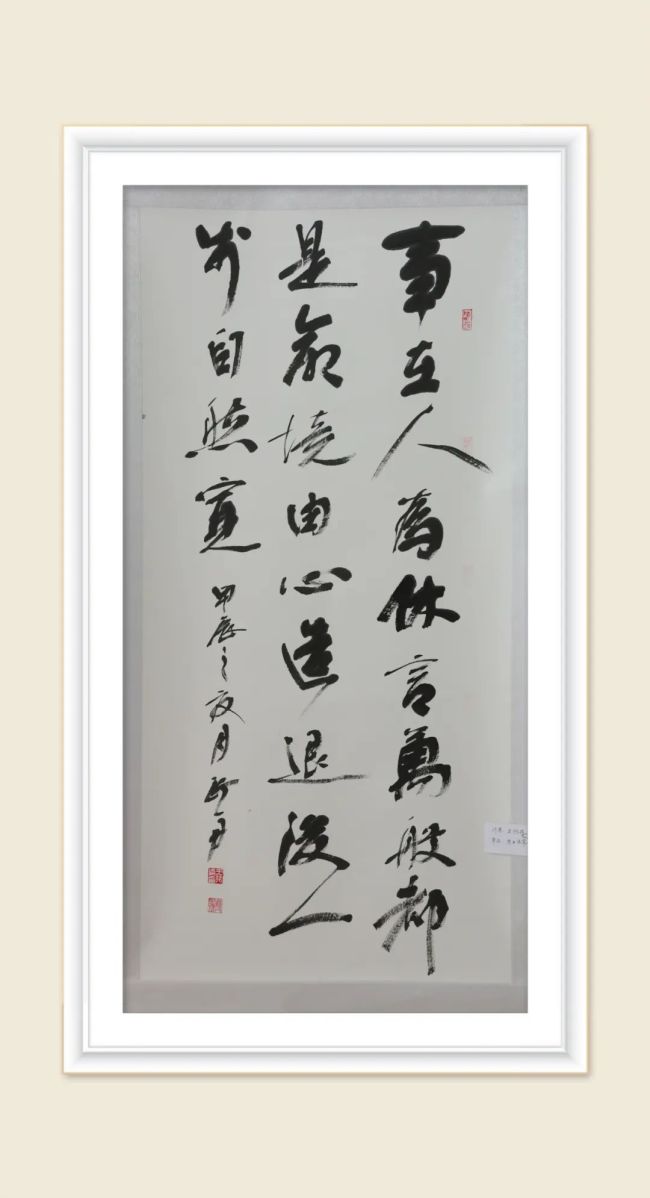 事在人為休言萬般都
是命境由心造退後一
步自然寬
甲辰之夏月